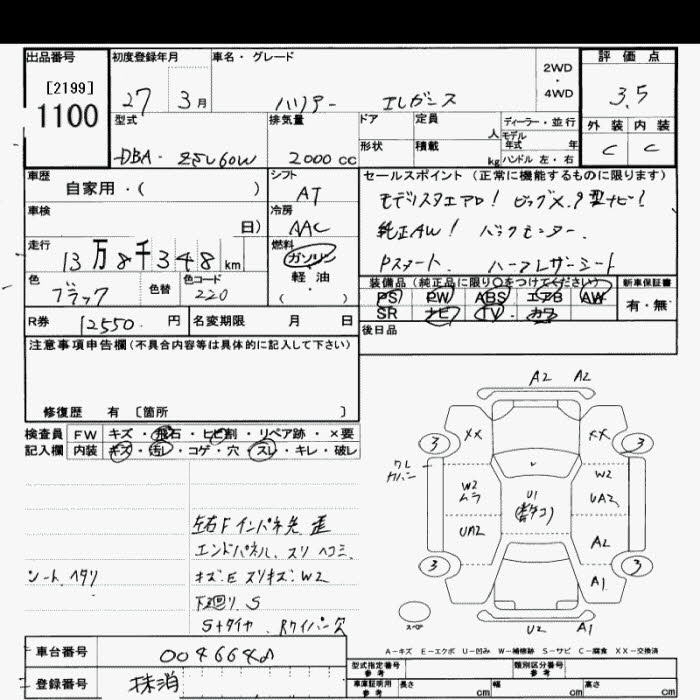 出品番号
[2199]
1100
初度登録年月
27 3月
車名・グレード
ハリアー エレガンス
2WD
・
4WD
評価点
3.5
外装 内装
C C
型式
DBA- ZSU60W
排気量
2000cc
ドア
形状
定員
人
積載
kg
ディーラー・並行
モデル
年式 年
ハンドル 左・右
車歴
自家用・( )
シフト
AT
セールスポイント(正常に機能するものに限ります)
モデリスタエアロ! ビッグX 9型ナビ!
純正AW! バックモニター
Pスタート ハーフレザーシート
車検
日)
冷房
AAC
走行
13万8千348km
燃料
ガソリン
軽油
( )
色
ブラック
色替
色コード
220
装備品(純正品に限り○をつけてください)
PS PW ABS エアB AW
SR ナビ TV カワ
新車保証書
有・無
R券 12550 円
名変期限 月 日
後日品
注意事項申告欄(不具合内容等は具体的に記入して下さい)
修復歴 有〔箇所 〕
検査員
記入欄
FW キズ・飛石・ヒビ割・リペア跡・×要
内装 キズ・汚レ・コゲ・穴・スレ・キレ・破レ
左右Fインパネ先 歪
エンドパネル、スリ ヘコミ
シート ヘタリ
キズ:E スリキズ:W2
下廻り S
S+タイヤ、Rワイパー欠
A2 A2
XX XX
3 3
ワレ
W2
ムラ
U1
W2
UA2
UA2
A2
3 3
A1
スペア
U2 A1
A-キズ E-エクボ U-凹み W-補修跡 S-サビ C-腐食 XX-交換済
車台番号
登録番号 抹消
型式指定番号
参考
類別区分番号
参考
車庫証明用
参考
長さ cm 幅 cm 高さ cm